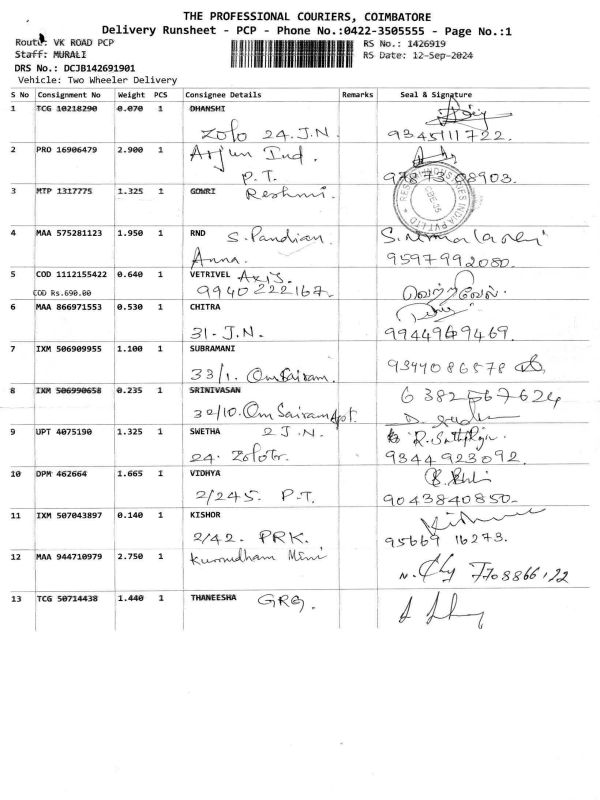 THE PROFESSIONAL COURIERS, COIMBATORE
Delivery Runsheet - PCP - Phone No.:0422-3505555 - Page No.:1
Route: VK ROAD PCP
RS No.: 1426919
Staff: MURALI
RS Date: 12-Sep-2024
DRS No.: DCJB142691901
Vehicle: Two Wheeler Delivery
S No Consignment No Weight PCS Consignee Details Remarks Seal & Signature
1 TCG 10218290 0.070 1 DHANSHI
Zolo 24.J.N. 9345111722.
2 PRO 16906479 2.900 1 Arjun Ind.
P.T. 9787308903.
3 MTP 1317775 1.325 1 GOWRI Reshmi.
4 MAA 575281123 1.950 1 RND S. Pandian
Anna. 9597992080.
5 COD 1112155422 0.640 1 VETRIVEL Axis.
COD Rs.690.00 9940222167. வெற்றிவேல்.
6 MAA 866971553 0.530 1 CHITRA
31-J.N. 9944969469.
7 IXM 506909955 1.100 1 SUBRAMANI
33/1. Om Sairam. 9344086878
8 IXM 506990658 0.235 1 SRINIVASAN 6382567624
32/10. Om Sairam Apt.
9 UPT 4075190 1.325 1 SWETHA 2 J.N.
24. Zolo 9344923092.
10 DPM 462664 1.665 1 VIDHYA
2/245. P.T. 9043840850-
11 IXM 507043897 0.140 1 KISHOR
2/42. PRK. 95669 16273.
12 MAA 944710979 2.750 1 Kurmudham Mini
7708866122
13 TCG 50714438 1.440 1 THANEESHA GRG.